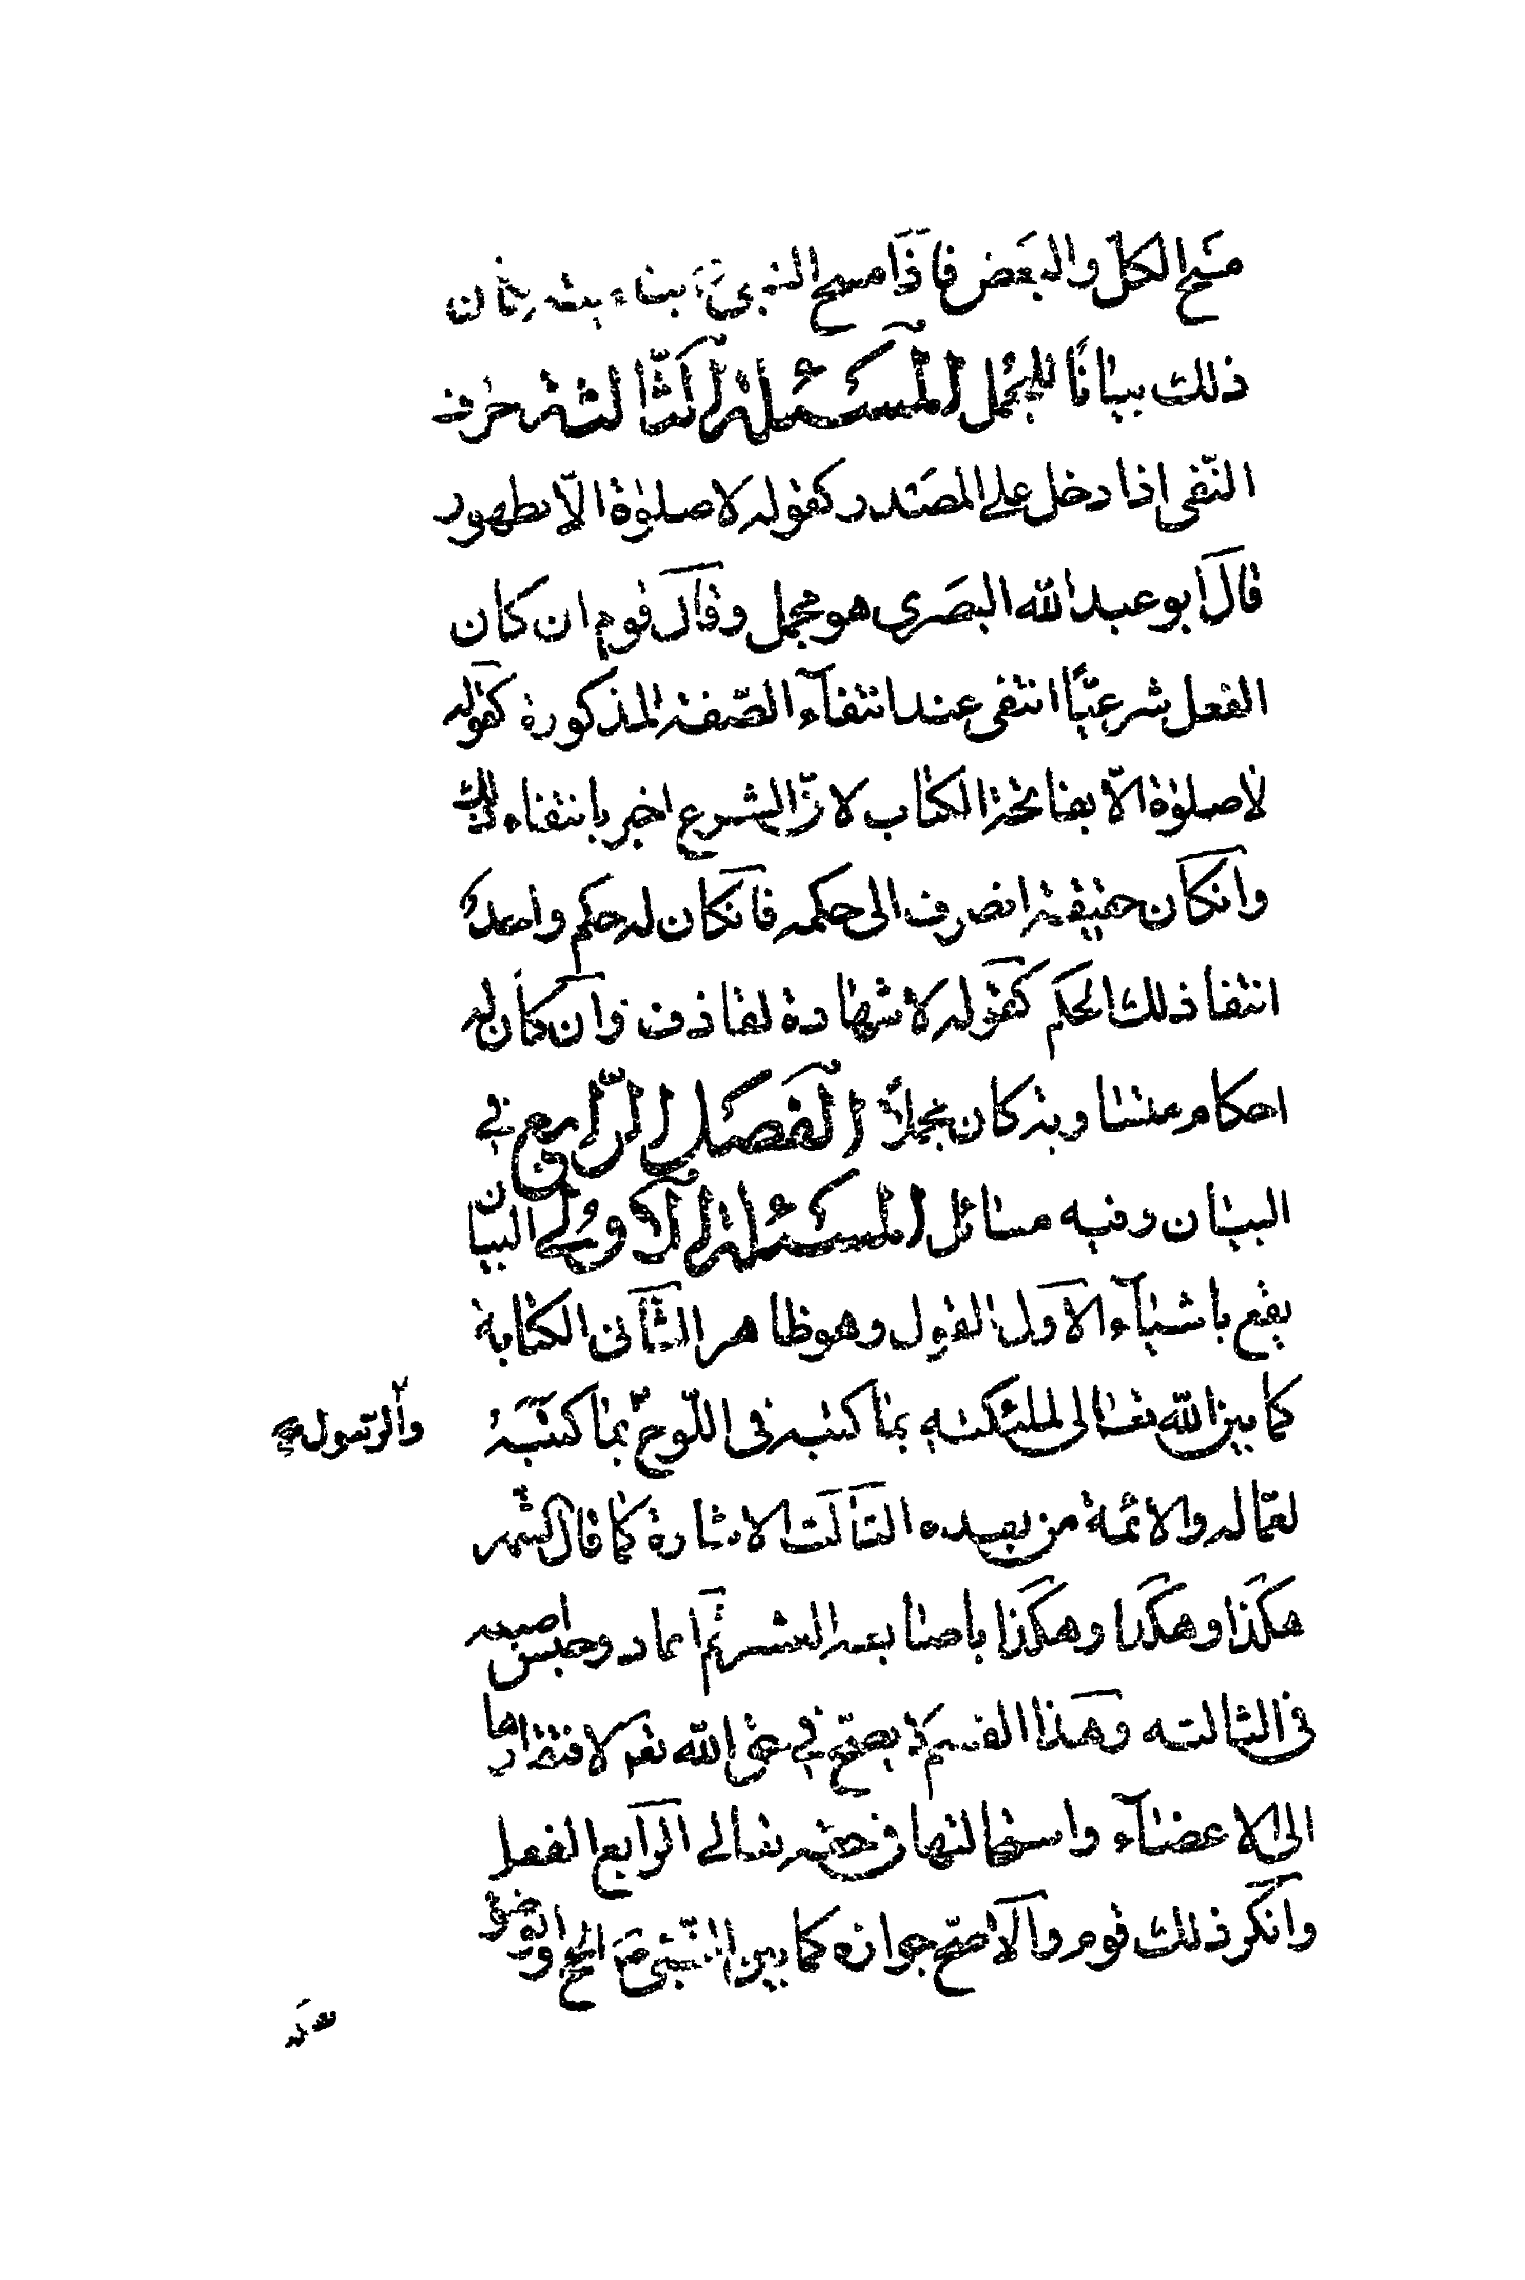 مسح الكل والبعض فاذا مسح النبى بناصيته كان
ذلك بيانًا للمجمل المسئلة الثالثة حرف
النّفى اذا دخل على المصدر كقوله لا صلوٰة الّا بطهور
قال ابو عبد الله البصرى هو مجمل وقال قوم ان كان
الفعل شرعيّا انتفى عند انتفآء الصّفة المذكورة كقوله
لا صلوٰة الّا بفاتحة الكتاب لانّ الشرع اخبر بانتفاء ذلك
وانكان حقيقة انصرف الى حكمه فانكان له حكم واحد
انتفا ذلك الحكم كقوله لا شهادة لقاذف وان كان له
احكام متساوية كان مجملاً الفصل الرّابع في
البيان وفيه مسائل المسئلة الاولى البيان
يقع باشيآء الاول القول وهو ظاهر الثانى الكتابة
كما بين الله تعالى لملئكته بما كتبه فى اللّوح بما كتبه
والرّسول ص
لعمّاله والائمة من بعده الثالث الاشارة كما قال الشهر
هكذا وهكذا وهكذا باصابعه العشر ثم اعاد وحبس اصبعه
فى الثالثه وهذا القسم لا يصحّ في حق الله تعه لافتقارها
الى الاعضآء واستحالتها فى حقه تعالى الرابع الفعل
وانكر ذلك قوم والاصحّ جوازه كما بين النّبى ص الحج والوضو